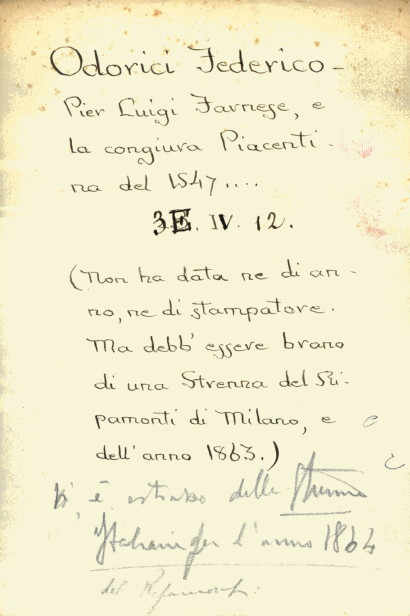 Odorici Federico -
Pier Luigi Farnese, e
la congiura Piacenti-
na del 1547....
3E. IV. 12.
(Non ha data ne di an-
no, ne di stampatore.
Ma debb' essere brano
di una Strenna del Ri-
pamonti di Milano, e
dell'anno 1863.)
è estratto dalla Strenna
Italiana per l'anno 1864
del Ripamonti.